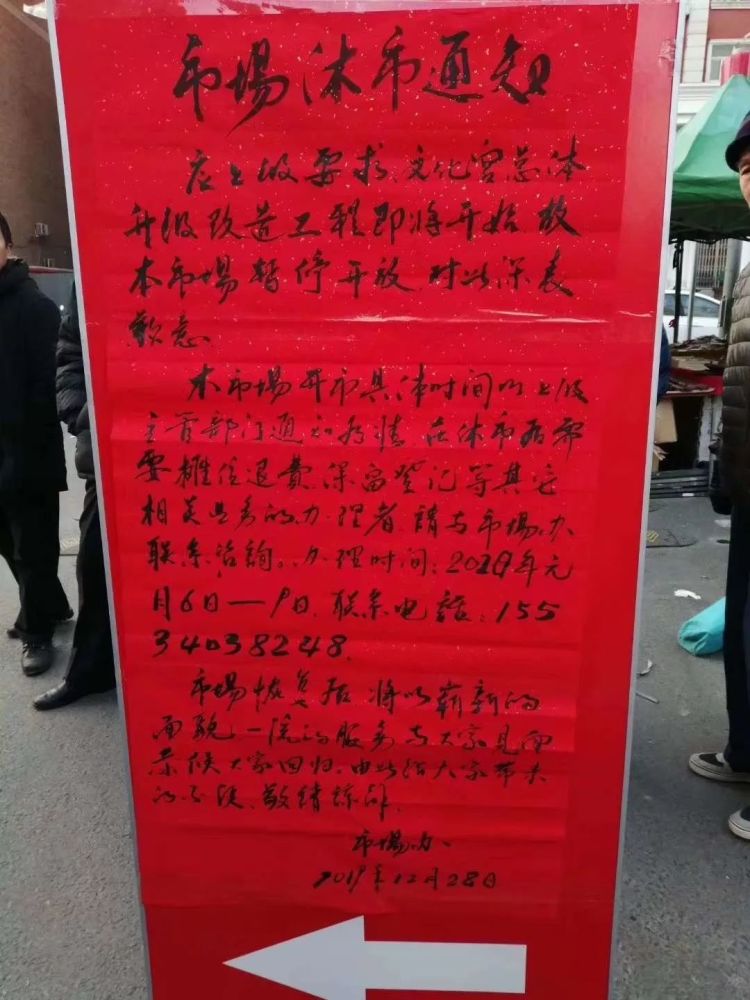 市場休市通知
应上级要求,文化宫总体
升级改造工程即将开始,故
本市場暂停开放,对此深表
歉意.
本市場开市具体时间以上级
主管部门通知为准,在休市后部
要摊位退费,保留登记等其它
相关业务的办理者,請与市場办
联系咨詢。办理时间:2020年元
月6日—9日.联系电話:155
34038248.
市場恢复后,将以崭新的
面貌,一流的服务与大家見面
恭候大家回归.由此给大家带来
的不便,敬请諒解.
市場办.
2019年12月28日